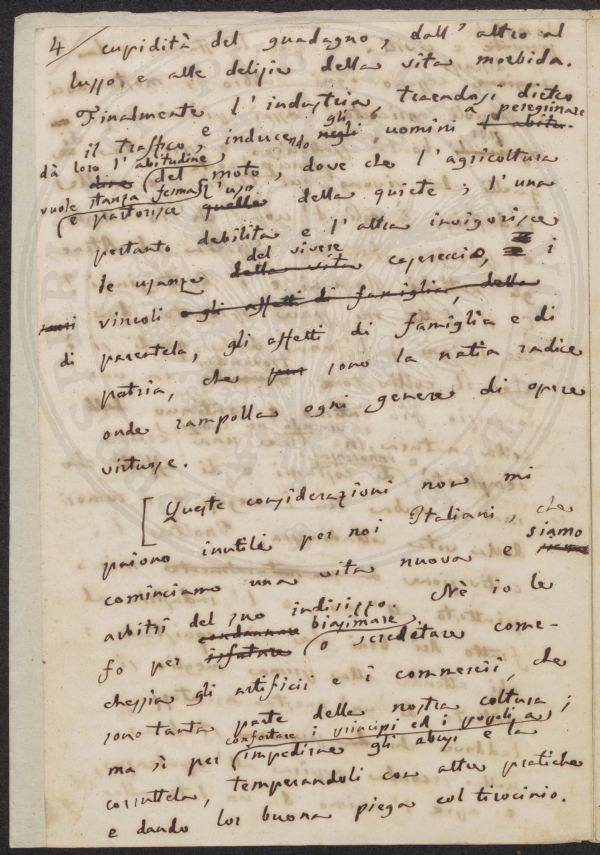 4/ cupidità del guadagno, dall' altro al
lusso, e alle delizie della vita morbida.
Finalmente l' industria, traendosi dietro
gli a peregrinare
il traffico, e inducendo negli uomini l' abitu-
dà loro l' abitudine
dine del moto, dove che l' agricoltura
vuole stanza ferma, l' uso
e partorisce quello della quiete; l' una
pertanto debilita e l' altra invigorisce
del vivere
le usanze della vita caserecce, i
vincoli e gli affetti di famiglia, della
di parentela, gli affetti di famiglia e di
patria, che pur sono la natia radice
onde rampolla ogni genere di opere
virtuose.
[Queste considerazioni non mi
paiono inutili per noi Italiani, che
siamo
cominciamo una vita nuova e
arbitri del suo indirizzo. Nè io le
condannare biasimare
fo per isfatare o screditare come-
chessia gli artificii e i commercii, che
sono tanta parte della nostra coltura;
confortare i principi ed i popoli a
ma sì per impedirne gli abusi e la
corruttela, temperandoli con altre pratiche
e dando lor buona piega col tirocinio.